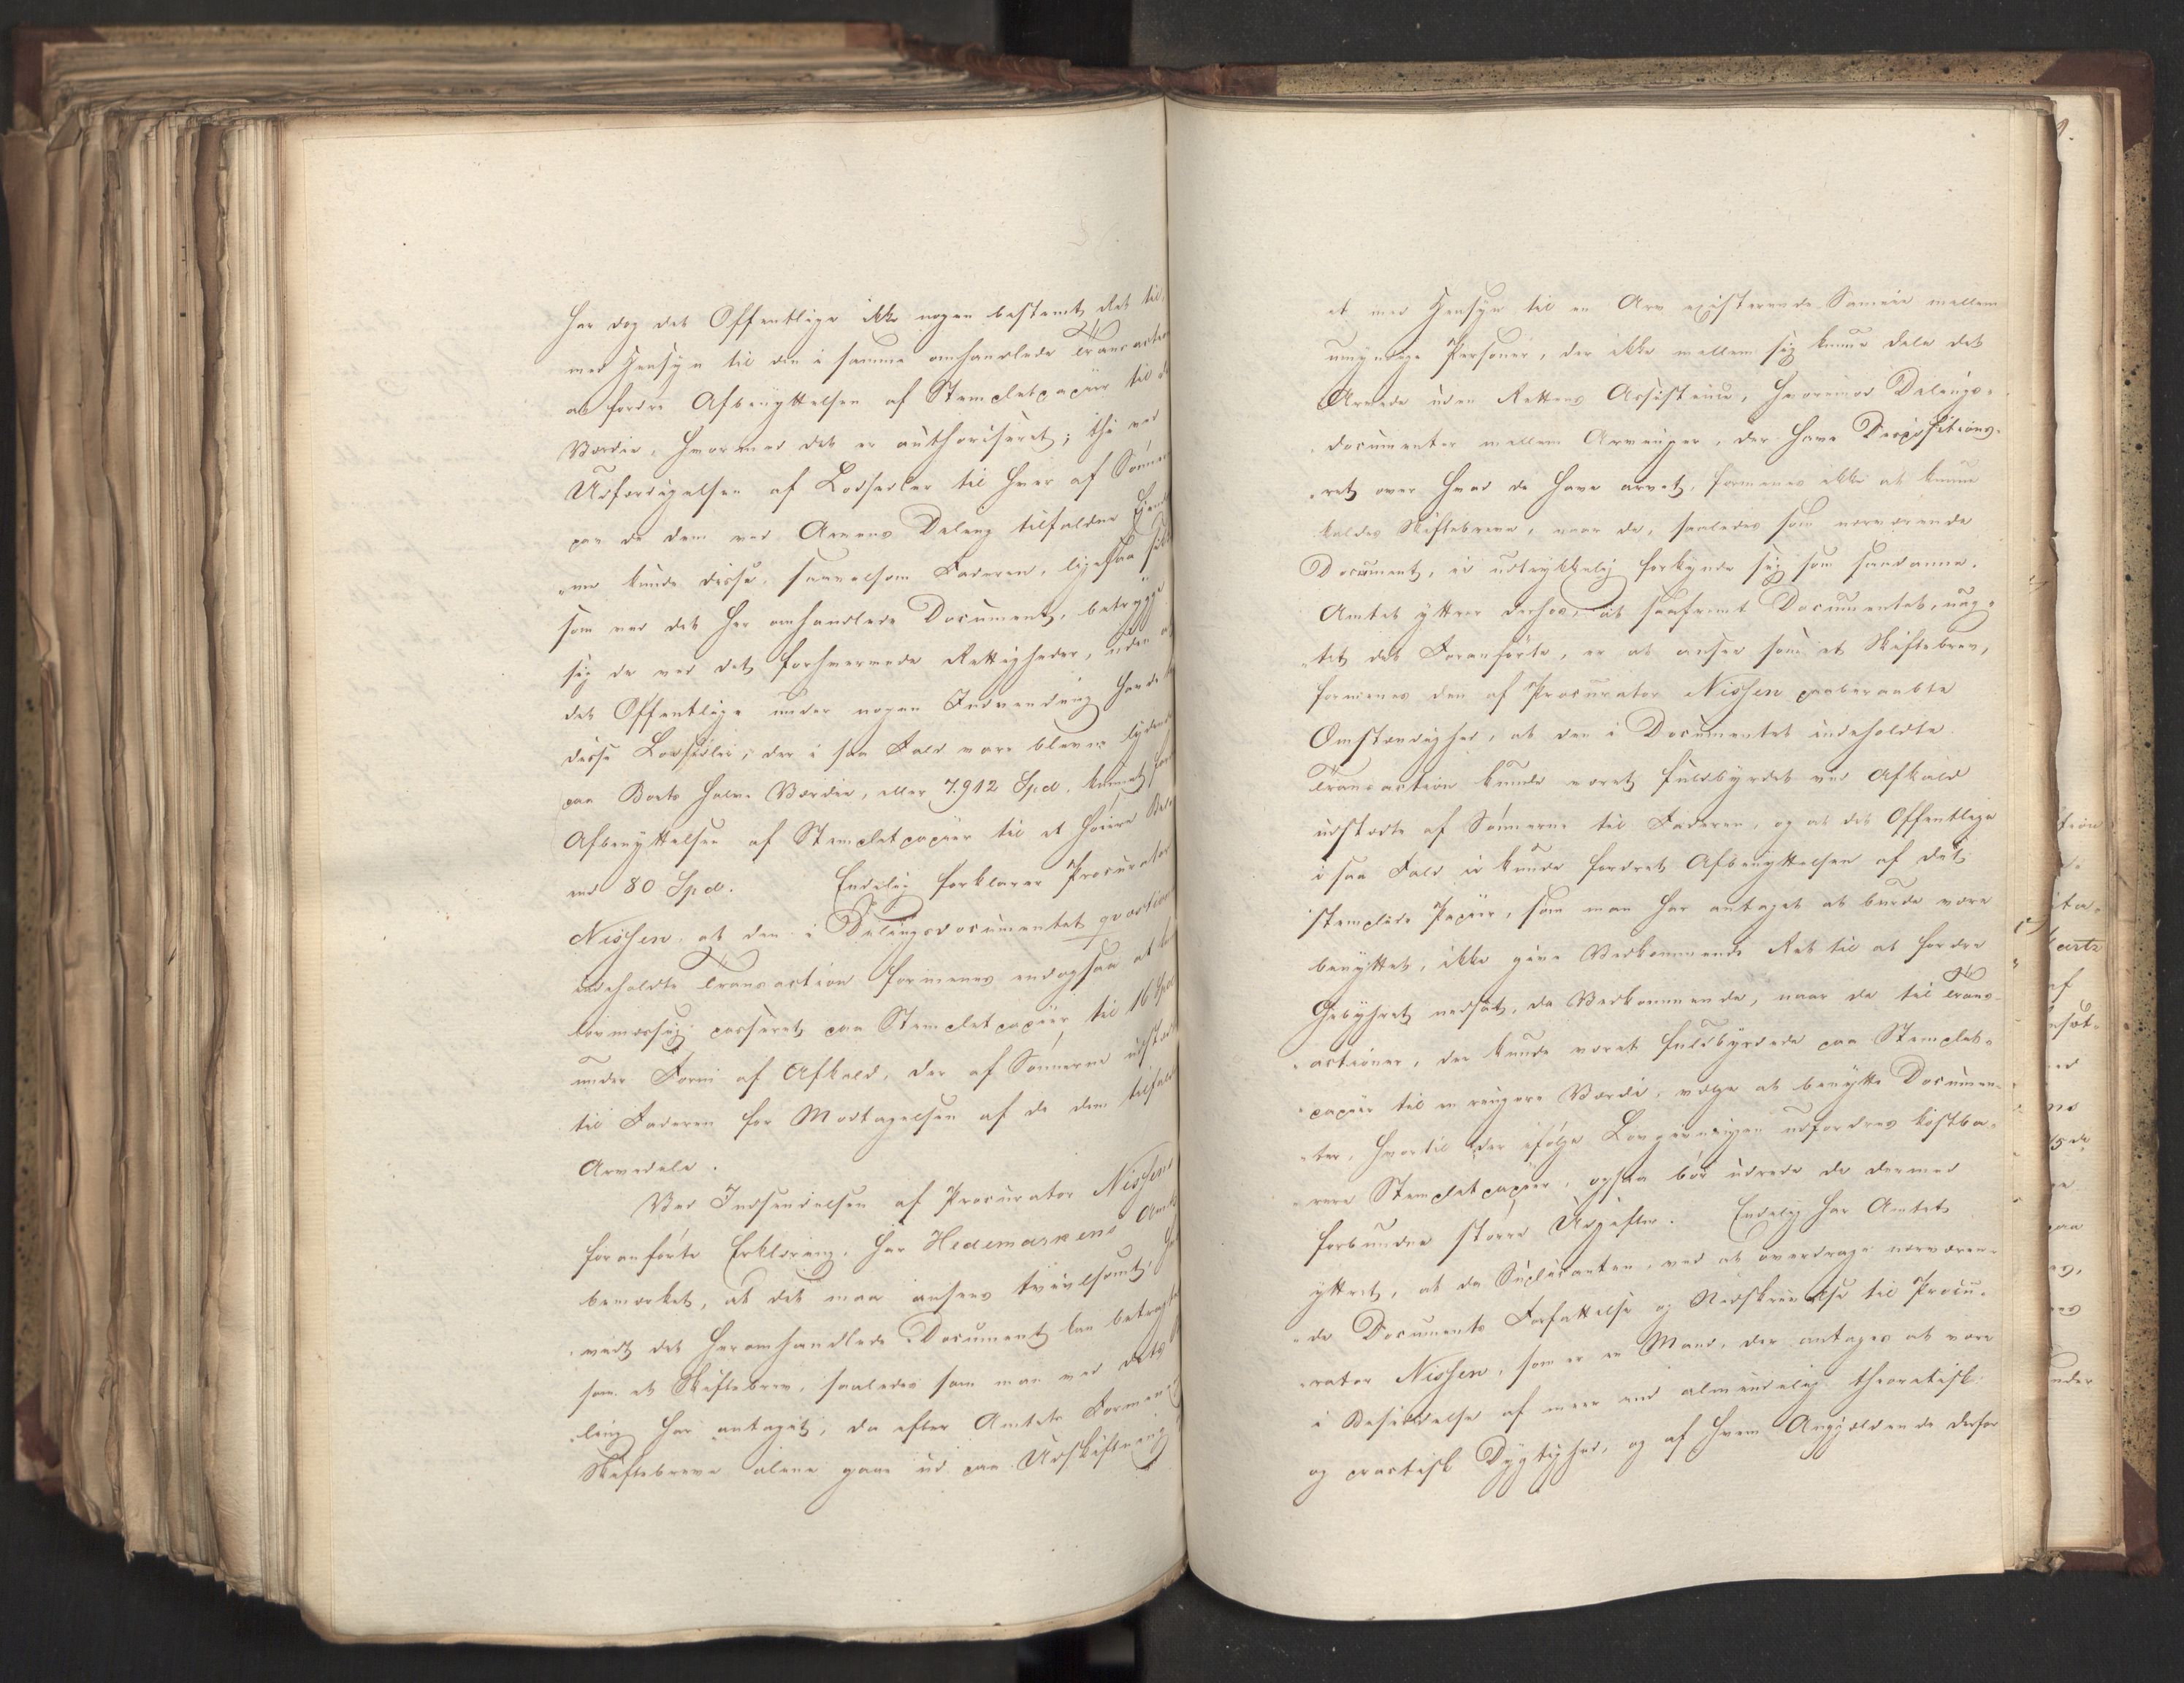 har dog det Offentlige ikke nogen bestemt Ret til,
med Hensyn til den i samme omhandlede Transaction
at fordre Afbenyttelsen af Stemplet papiir til
Værdie, hvormed det er authoriseret; thi ved
Udfærdigelsen af Lodsedler til hver af Sønnerne
paa de dem ved Arvens Deling tilfaldne Eiend
omme kunde disse, saavelsom Faderen, ligesaa
som ved det her omhandlede Document, betrygge
sig de ved det forhvervede Rettigheder, uden at
det Offentlige under nogen Indvending havde
disse Lodsedler, der i saa Fald vare blevne lydende
paa Boets halve Værdie, eller 7.912 Spd, kunnet
Afbenyttelsen af Stemplet papiir til et høiere
end 80 Spd. Endelig forklarer Procurator
Nissen, at den i Delingsdocumentet qvæstion
indeholdte Transaction formenes endogsaa at
lovmæssig passeret paa Stemplet papiir til 16 Spd
under Form af Afkald, der af Sønnerne udsted
til Faderen for Modtagelsen af de dem tilfald
Arvedele.
Ved Indsendelsen af Procurator Nissens
foranførte Erklæring, har Hedemarkens Amt
bemærket, at det maa ansees tvivlsomt,
vidt det heromhandlede Document kan betragtes
som et Skiftebrev, saaledes som man ved dets
ling har antaget, da efter Amtets Formening
Skiftebreve alene gaae ud paa Udskiftning
et med Hensyn til en Arv existerende Sameie mellem
umyndige Personer, der ikke mellem sig kunne dele det
Arvede uden Rettens Assistence, hvorimod Delings-
documenter mellem Arvinger, der have Dispositions-
ret over hvad de have arvet, formenes ikke at kunne
kaldes Skiftebreve, naar de, saaledes som nærværende
Document, ei udtrykkelig forkynde sig som saadanne.
Amtet yttrer derhos, at saafremt Documentet, uag-
tet det Foranførte, er at ansee som et Skiftebrev,
formenes den af Procurator Nissen paaberaabte
Omstændighed, at den i Documentet indeholdte
Transaction kunde været fuldbyrdet ved Afkald
udstædte af Sønnerne til Faderen, og at det Offentlige
i saa Fald ei kunde fordret Afbenyttelsen af det
stemplede Papiir, som man har antaget at burde være
benyttet, ikke give Vedkommende Ret til at fordre
Gebyhret nedsat, da Vedkommende, naar de til Trans-
actioner, der kunde været fuldbyrdede paa Stemplet-
papiir til en ringere Værdi, vælge at benytte Documen-
ter, hvortil der ifølge Lovgivningen udfordres kostba-
rere Stempletpapiir, ogsaa bør udrede de dermed
forbundne større Udgifter. Endelig har Amtet
yttret, at da Suplicanten, ved at overdrage nærværen-
de Documents Forfattelse og Nedskrivelse til Procu-
rator Nissen, som er en Mand, der antages at være
i Besiddelse af meer end almindelig theoretisk
og practisk Dygtighed, og af hvem Angjældende derfor